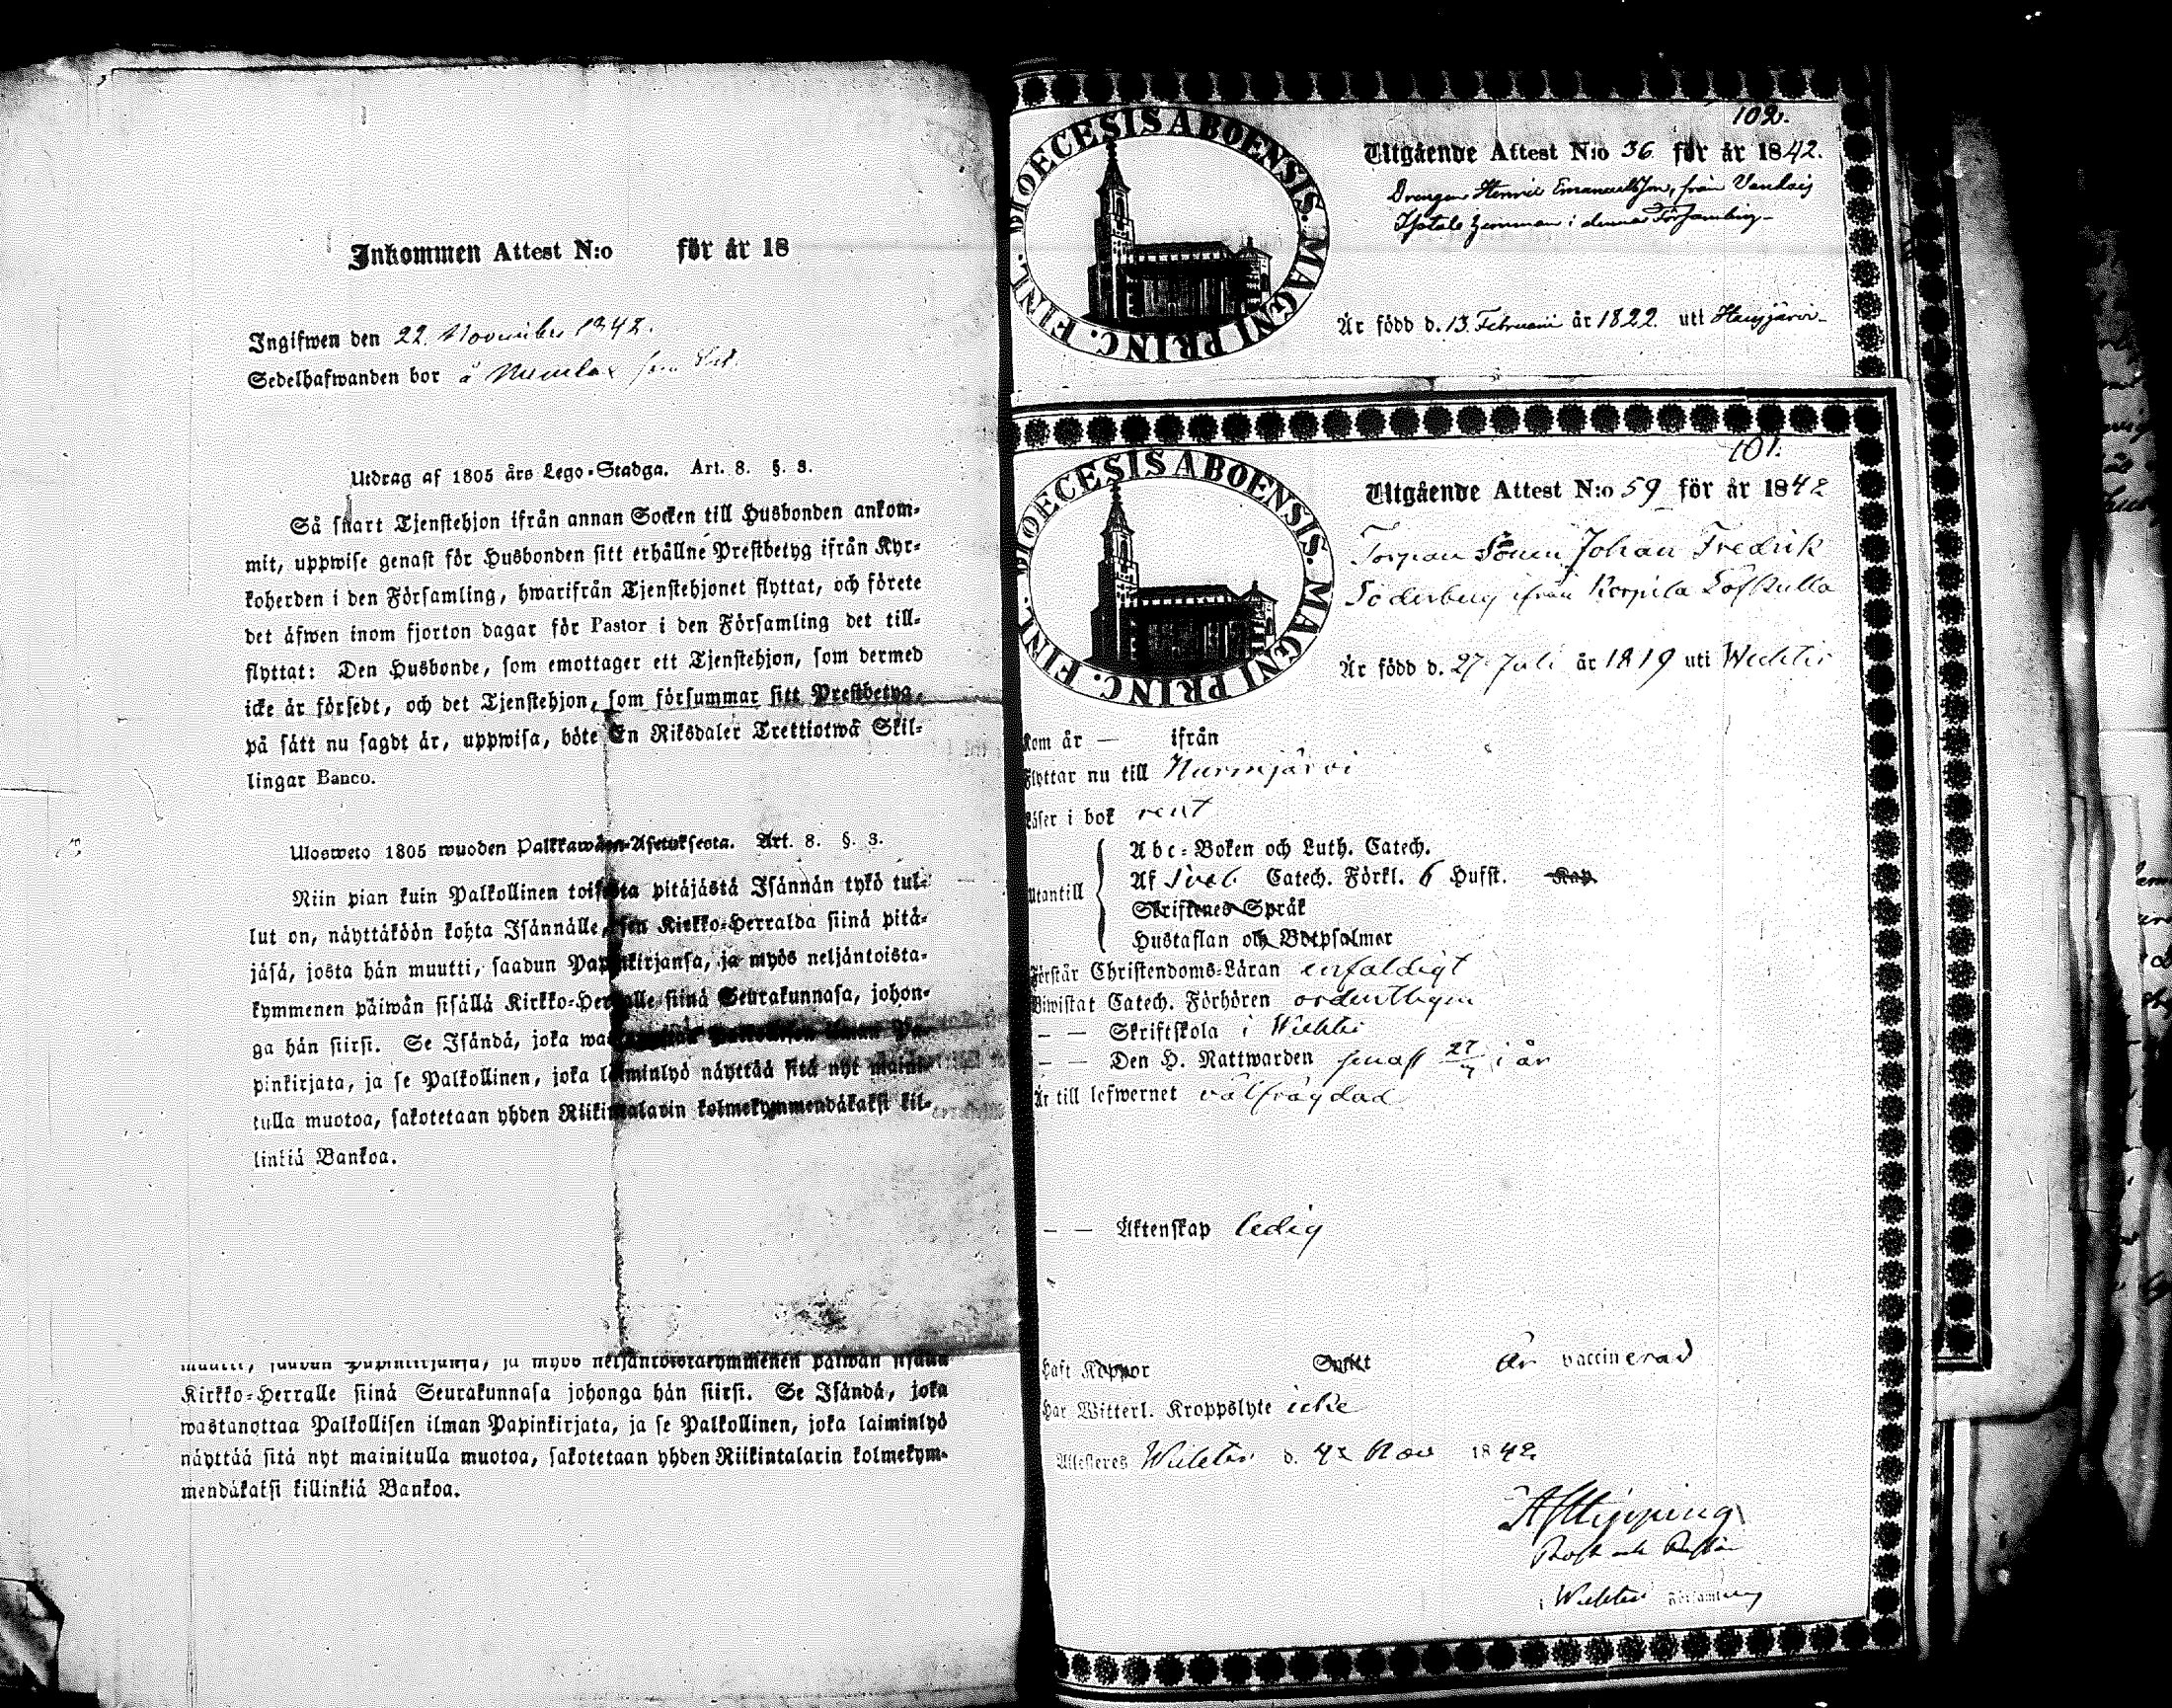 Inkommen Attest N:o för år 18
Ingifwen den 22. Novembr 1842.
Sedelhafwanden bor å
Utdrag af 1805 års Lego-Stadga. Art. 8. §. 3.
Så snart Tjenstehjon ifrån annan Socken till Husbonden ankom-
mit, uppwise genast för Husbonden sitt erhållne Prestbetyg ifrån Kyr-
koherden i den Församling, hwarifrån Tjenstehjonet flyttat, och förete
det äfwen inom fjorton dagar för Pastor i den Församling det till-
flyttat: Den Husbonde, som emottager ett Tjenstehjon, som dermed
icke är försedt, och det Tjenstehjon, som försummar sitt Prestbetyg,
på sätt nu sagdt är, uppwisa, böte En Riksdaler Trettiotwå Skil-
lingar Banco.
Ulosweto 1805 wuoden Palkkawäen-Asetuksesta. Art. 8. §. 3.
Niin pian kuin Palkollinen toisesta pitäjästä Isännän tykö tul-
lut on, näyttäköön kohta Isännälle, sen Kirkko-Herralda siinä pitä-
jäsä, josta hän muutti, saadun Papinkirjansa, ja myös neljäntoista-
kymmenen päiwän sisällä Kirkko-Herralle siinä Seurakunnasa, johon-
ga hän siirsi. Se Isändä, joka
pinkirjata, ja se Palkollinen, joka laiminlyö näyttää sitä nyt maini-
tulla muotoa, sakotetaan yhden Riikintalarin kolmekymmendäkaksi kil-
linkiä Bankoa.
muutti, saadun Papinkirjansa, ja myös neljäntoistakymmenen päiwän sisällä
Kirkko-Herralle siinä Seurakunnasa johonga hän siirsi. Se Isändä, joka
wastanottaa Palkollisen ilman Papinkirjata, ja se Palkollinen, joka laiminlyö
näyttää sitä nyt mainitulla muotoa, sakotetaan yhden Riikintalarin kolmekym-
mendäkaksi killinkiä Bankoa.
102.
DIOECESIS ABOENSIS. MAGNI PRINC. FINL.
Utgående Attest N:o 36 för år 1842.
Drengen Henric Emanuelsson, från
i denna Församling
Är född d. 13. Februarii år 1822. uti Hausjärvi
101.
DIOECESIS ABOENSIS. MAGNI PRINC. FINL.
Utgående Attest N:o 59 för år 1842
Torpare Sonen Johan Fredrik
Söderberg ifrån Korpila Tofkulla
Är född d. 27 Juli år 1819 uti Wichtis
Kom år — ifrån
Flyttar nu till Nurmijärvi
Läser i bok rent
Utantill
Abc-Boken och Luth. Catech.
Af Sveb Catech. Förkl. 6 Husst. Kap.
Skriftenes Språk
Hustaflan och Botpsalmer
Förstår Christendoms-Läran enfaldigt
Biwistat Catech. Förhören ordentligen
— — Skriftskola i Wichtis
— — Den H. Nattwarden senast 27/7 i år
Är till lefwernet välfrägdad
— — Äktenskap ledig
Haft Koppor Är vaccinerad
Har Witterl. Kroppslyte icke
Attesteras Wichtis d. Nov 1842
i Wichtis Församling